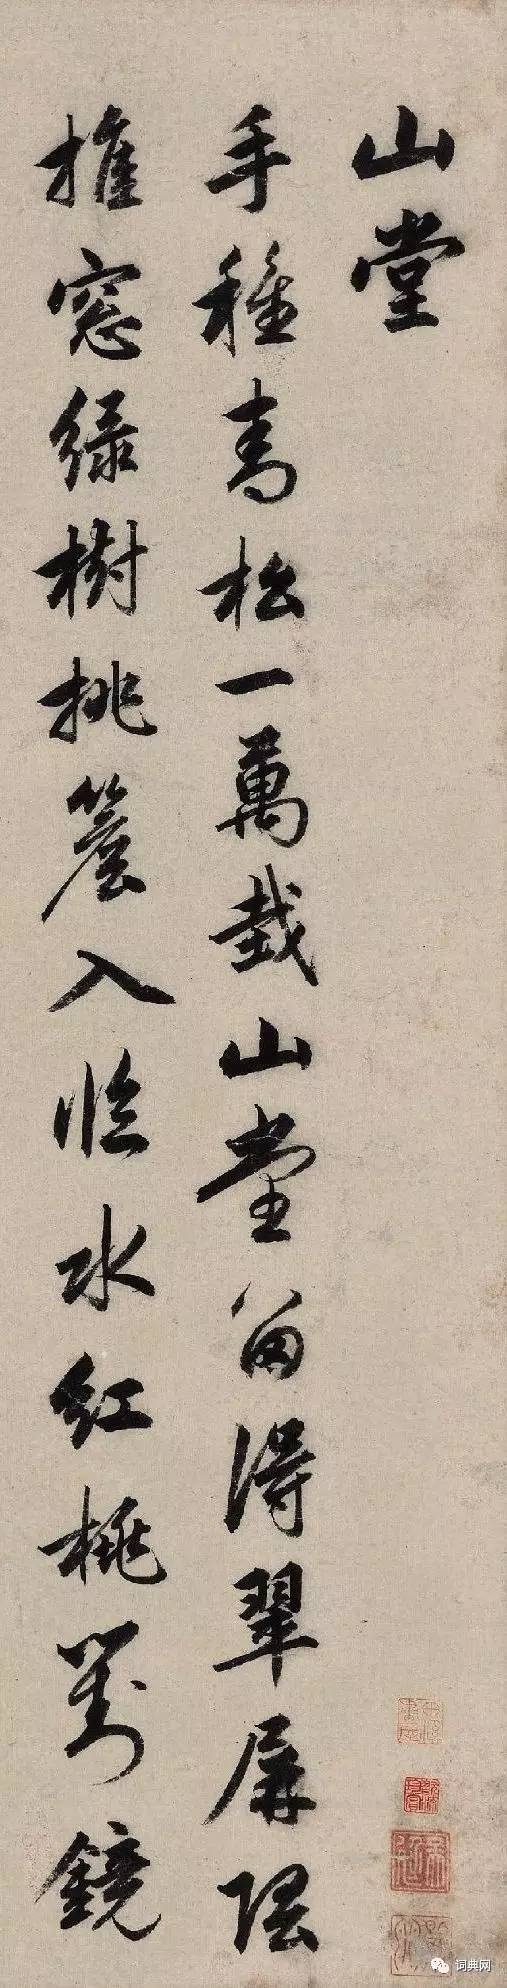 山堂
手種青松一萬栽山堂留得翠屏隈
推窓綠樹排簷入臨水紅桃對鏡
词典网